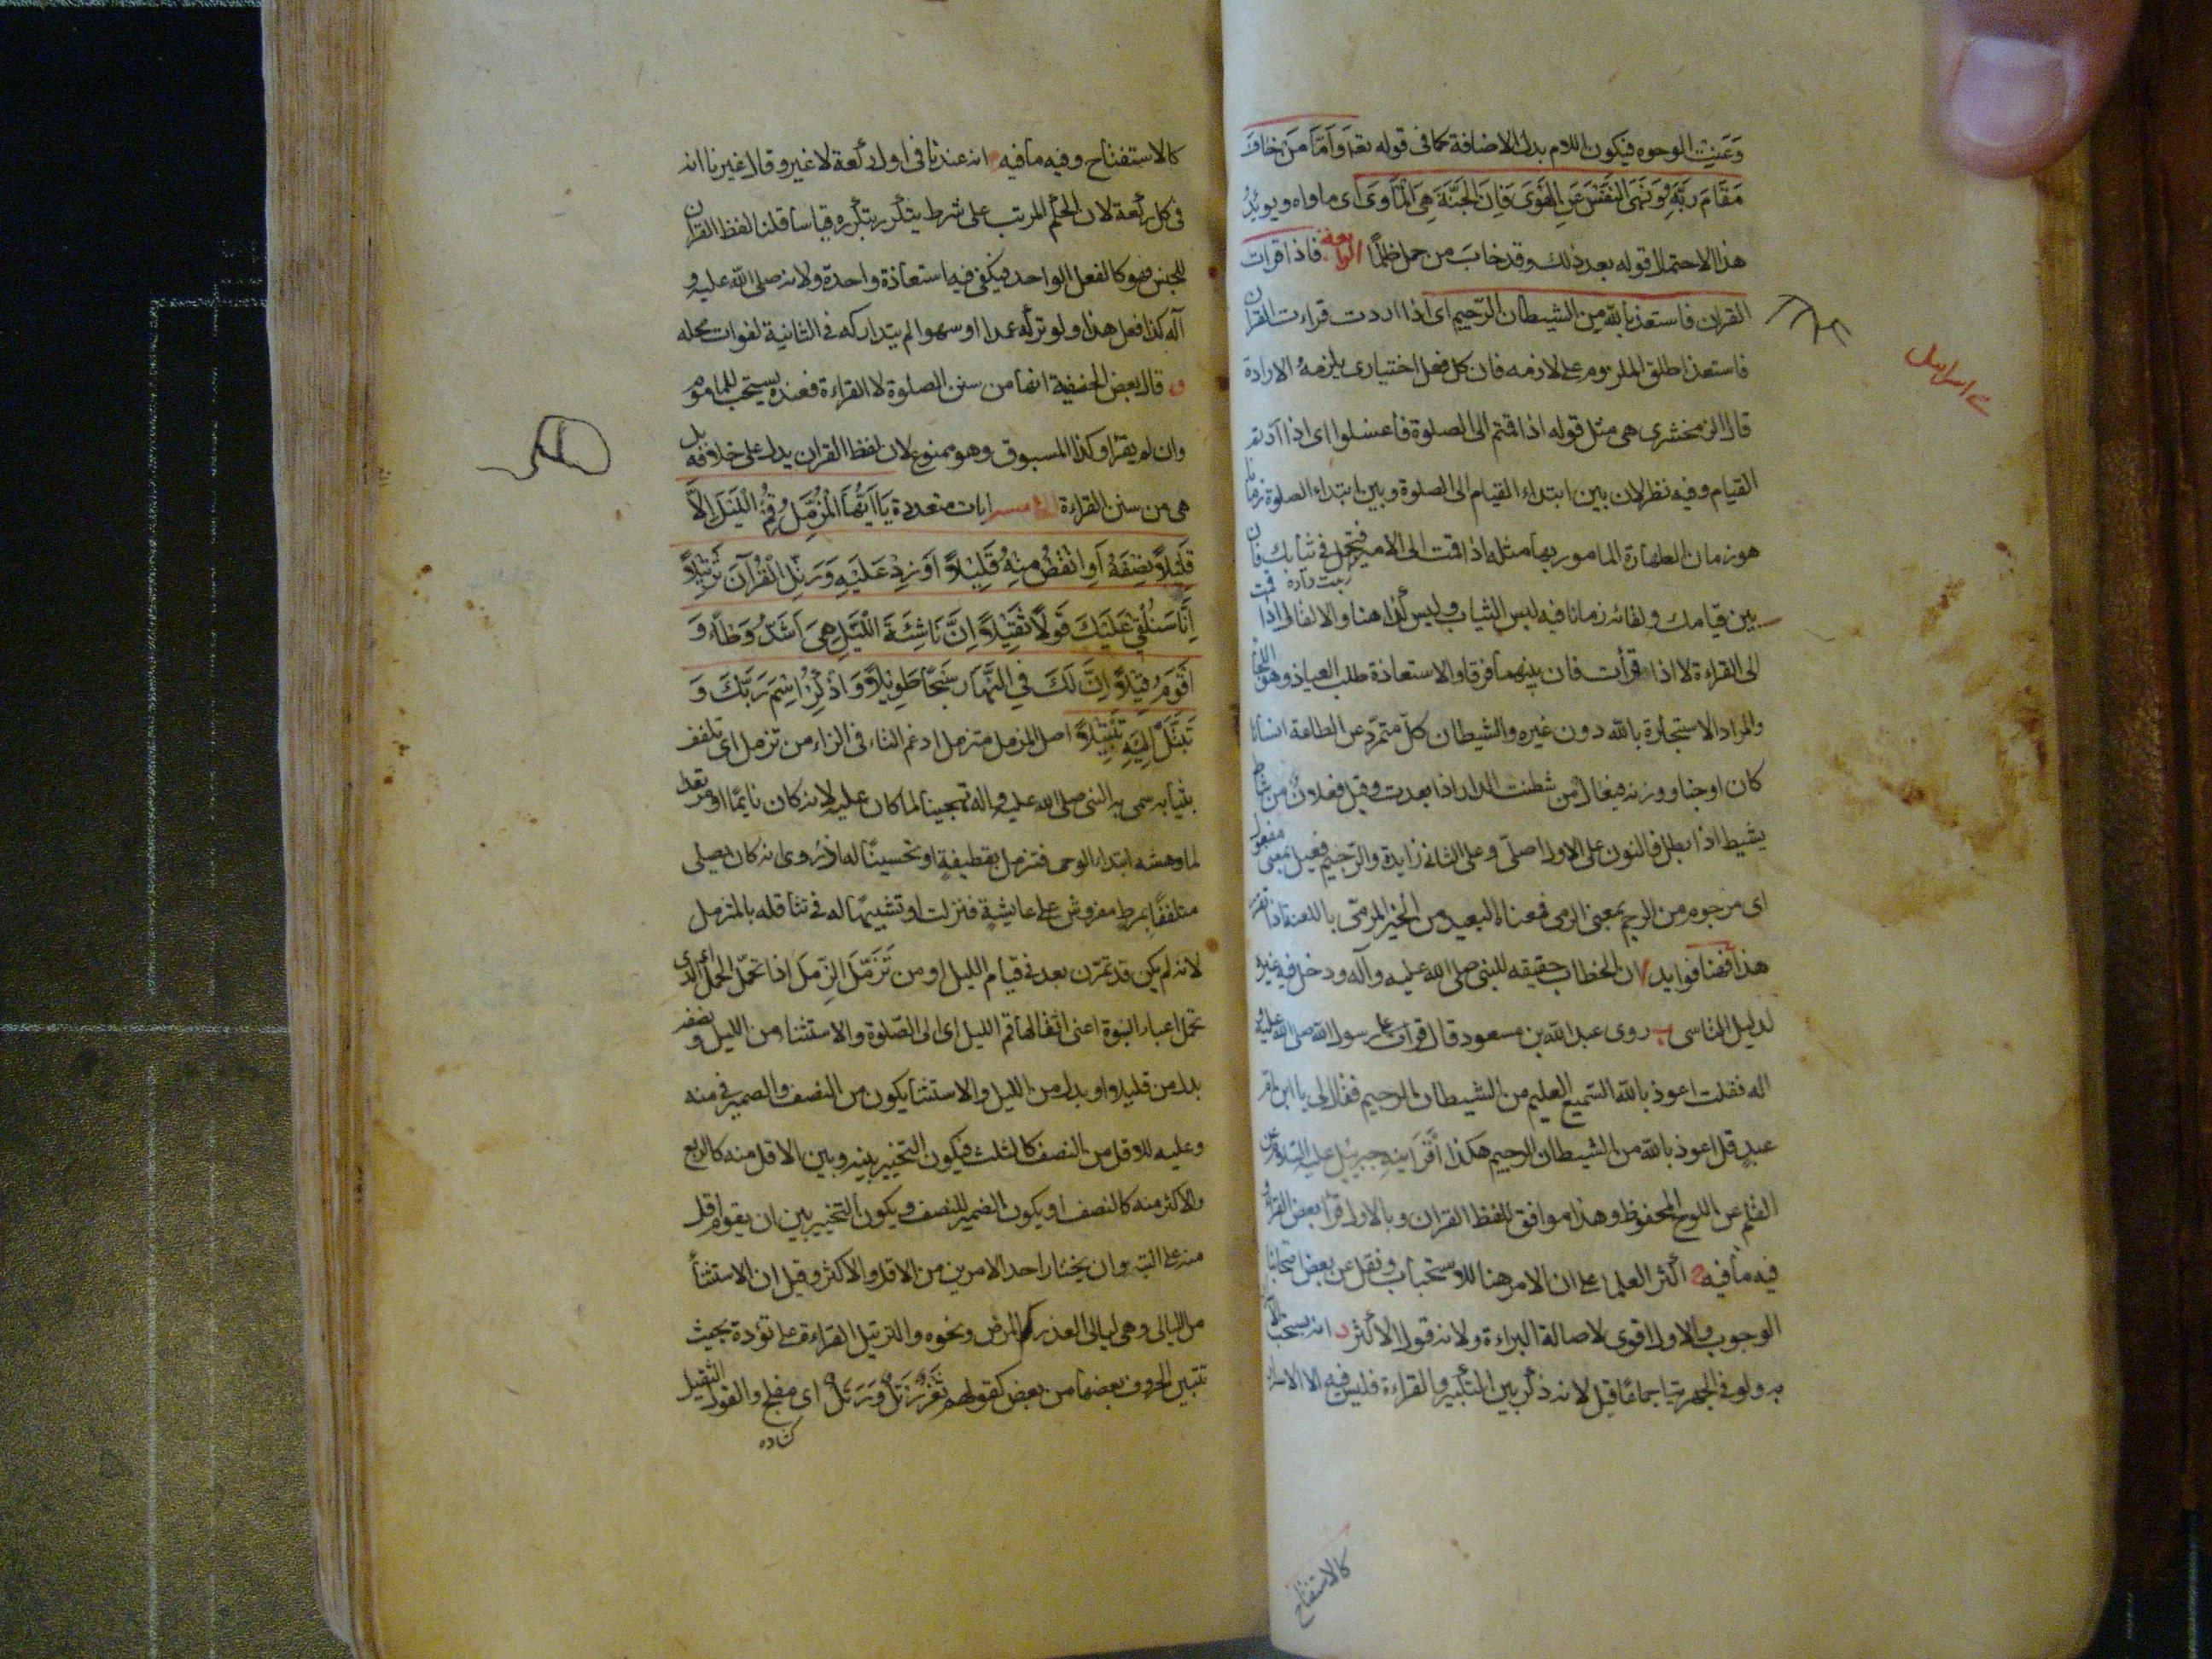 وَعَنَتِ الوجوه فيكون اللام بدل الاضافة كما فى قوله تعه وَاَمَّا مَنْ خَافَ
مَقَامَ رَبِّهِ وَنَهَى النَّفْسَ عَنِ الهَوٰى فَاِنَّ الجَنَّةَ هِىَ الْمَأْوٰى اى ماواه ويويد
هذا الاحتمال قوله بعد ذلك وقد خابَ من حمل ظلمًا الرابعة فاذا قرات
القران فاستعذ بالله من الشيطان الرّجيم اى اذا اردت قراءت القران
فاستعذ اطلق الملزوم على لازمه فان كل فعل اختيارى يلزمهُ الارادة
قال الزمخشرى هى مثل قوله اذا قمتم الى الصلوة فاغسلوا اى اذا اردتم
القيام وفيه نظر لان بين ابتداء القيام الى الصلوة وبين ابتداء الصلوة زمانا
هو زمان الطهارة المامور بها مثله اذا قمت الى الامير فتجمل فى ثيابك فان
بين قيامك ولقائه زمانا فيه لبس الثياب وليس كذا هنا والا لقال اذا قمت
الى القراءة لا اذا قرأت فان بينهما فرقا والاستعاذة طلب العياذ وهو اللجأ
والمراد الاستجارة بالله دون غيره والشيطان كلّ متمرّد عن الطاعة انسانا
كان او جنا ووزنه فيعال من شطنت الدار اذا بعدت وقيل فعلان من شاط
يشيط اذا بطل فالنون على الاول اصلىّ وعلى الثانى زايدة والرّجيم فعيل بمعنى مفعول
اى مرجوم من الرجم بمعنى الرمى فمعناه البعيد من الخير المرمىّ باللعنة اذا تقرر
هذا فهنا فوايد ا ان الخطاب حقيقه للنبى صلى الله عليه وآله ودخل فيه غيره
لدليل التاسى ب روى عبد الله بن مسعود قال قرات على رسول الله صلى الله عليه و
اله فقلت اعوذ بالله السّميع العليم من الشيطان الرجيم فقال لى يا ابن ام
عبدٍ قل اعوذ بالله من الشيطان الرجيم هكذا أقْرَأنيهِ جبرئيل عليه السلام عن
القلم عن اللوح المحفوظ وهذا موافق للفظ القران وبالاول قرأ بعض القراء و
فيه ما فيه ج اكثر العلما على ان الامر هنا للاستحباب ونقل عن بعض اصحابنا
الوجوب والاول اقوى لاصالة البراءة ولانه قول الاكثر د انه يستحب
به ولو فى الجهرية اجماعًا قيل لانه ذكر بين التكبير والقراءة فليس فيه الا الاسرار
كالاستفتاح
كالاستفتاح وفيه ما فيه ه انه عندنا فى اول ركعة لا غير وقال غيرنا انه
فى كل ركعة لان الحكم المرتب على شرط يتكرر بتكرره قياسا قلنا لفظ القران
للجنس فهو كالفعل الواحد فيكفى فيه استعاذة واحدة ولانه صلى الله عليه و
آله كذا فعل هذا ولو تركه عمدا او سهوا لم يتداركه فى الثانية لفوات محله
و قال بعض الحنفية انها من سنن الصلوة لا القراءة فعنده يستحب للماموم
وان لم يقرا وكذا المسبوق وهو ممنوع لان لفظ القران يدل على خلافه بل
هى من سنن القراءة الخامسة ايات متعددة يَا اَيُّهَا الْمُزَّمِّل قُمِ اللَّيْلَ اِلَّا
قَلِيْلاً نِصْفَهُ اَوِ انْقُصْ مِنْهُ قَلِيْلاً اَوْ زِدْ عَلَيْهِ وَرَتِّلِ الْقُرْآنَ تَرْتِيْلاً
اِنَّا سَنُلْقِيْ عَلَيْكَ قَوْلاً ثَقِيْلاً اِنَّ نَاشِئَةَ اللَّيْلِ هِىَ اَشَدُّ وَطْأً وَ
اَقْوَمُ قِيْلاً اِنَّ لَكَ فِي النَّهَارِ سَبْحًا طَوِيْلاً وَاذْكُرْ اسْمَ رَبِّكَ وَ
تَبَتَّلْ اِلَيْهِ تَبْتِيْلاً اصل المزمل متزمل ادغم التاء فى الزاء من تزمل اى تلفف
بثيابه سمى به النبى صلى الله عليه واله تهجينا لما كان عليه لانه كان نايمًا او مرتعد
لما دهشه ابتداء الوحى فتزمل بقطيفةٍ او تحسينًا له اذ رُوى انه كان يصلى
متلففًا بمرطٍ مفروش على عايشةٍ فنزلت او تشبيهًا له فى تثاقله بالمتزمل
لانه لم يكن قد تمرّن بعد فى قيام الليل او من تَزَمَّلَ الزِّملَ اذا تحمّل الحمل اى الذى
تحمل اعباء النبوة اعنى اثقالها قم الليل اى الى الصّلوة والاستثناء من الليل ونصفه
بدل من قليلا او بدل من الليل والاستثنا يكون من النصف والضمير فى منه
وعليه للاقل من النصف كالثلث فيكون التخيير بينه وبين الاقل منه كالربع
والاكثر منه كالنصف او يكون الضمير للنصف ويكون التخيير بين ان يقوم اقل
منه على البت وان يختار احد الامرين من الاقل والاكثر وقيل ان الاستثنأ
من الليالى وهى ليالى العذر كالمرض ونحوه والترتيل القراءة على تؤدة بحيث
تتبين الحروف بعضها من بعض كقولهم ثَغْرٌ رَتَلٌ ورَتِلٌ اى مفلج والقول الثقيل